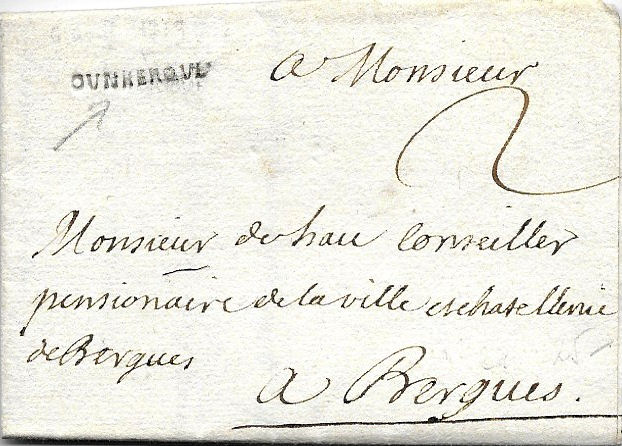 DUNKERQUE
A Monsieur
2
Monsieur de hau Conseiller
pensionaire de la ville et chatellenie
de Bergues
A Bergues.